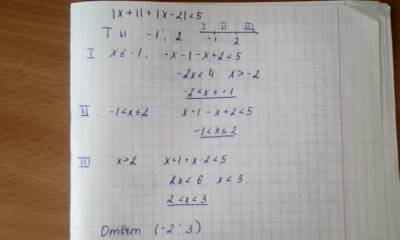 |x+1|+|x-2|<5
Т.н -1; 2 I II III
-1 2
I x≤-1, -x-1-x+2<5
-2x<4 x>-2
-2<x≤-1
II. -1<x≤2 x+1-x+2<5
-1<x≤2
III x>2 x+1+x-2<5
2x<6 x<3.
2<x<3
Ответ (-2; 3)